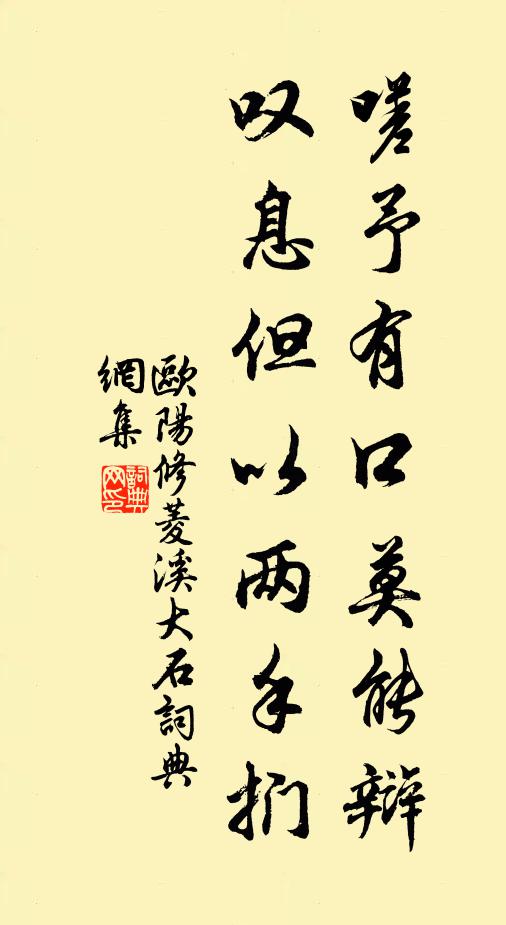 嗟予有口莫能辯
叹息但以两手捫
歐陽修菱溪大石詞典
網集
詞典
网印